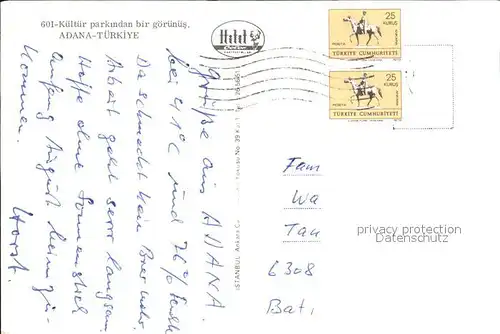 601-Kültür parkından bir görünüş.
ADANA-TÜRKİYE
Hitit
25
KURUŞ
POSTA
TÜRKİYE CUMHURİYETİ
25
KURUŞ
POSTA
TÜRKİYE CUMHURİYETİ
Grüße aus ADANA
bei 41°C und 76% Feucht
Da schmeckt kein Bier mehr.
Arbeit geht sehr langsam
Hoffe ohne Sonnenstich
Anfang August heim zu
kommen.
Horst.
İSTANBUL Ankara Ca
No. 99
Fam
Wa
Tau
6308
Bat
privacy protection
Datenschutz